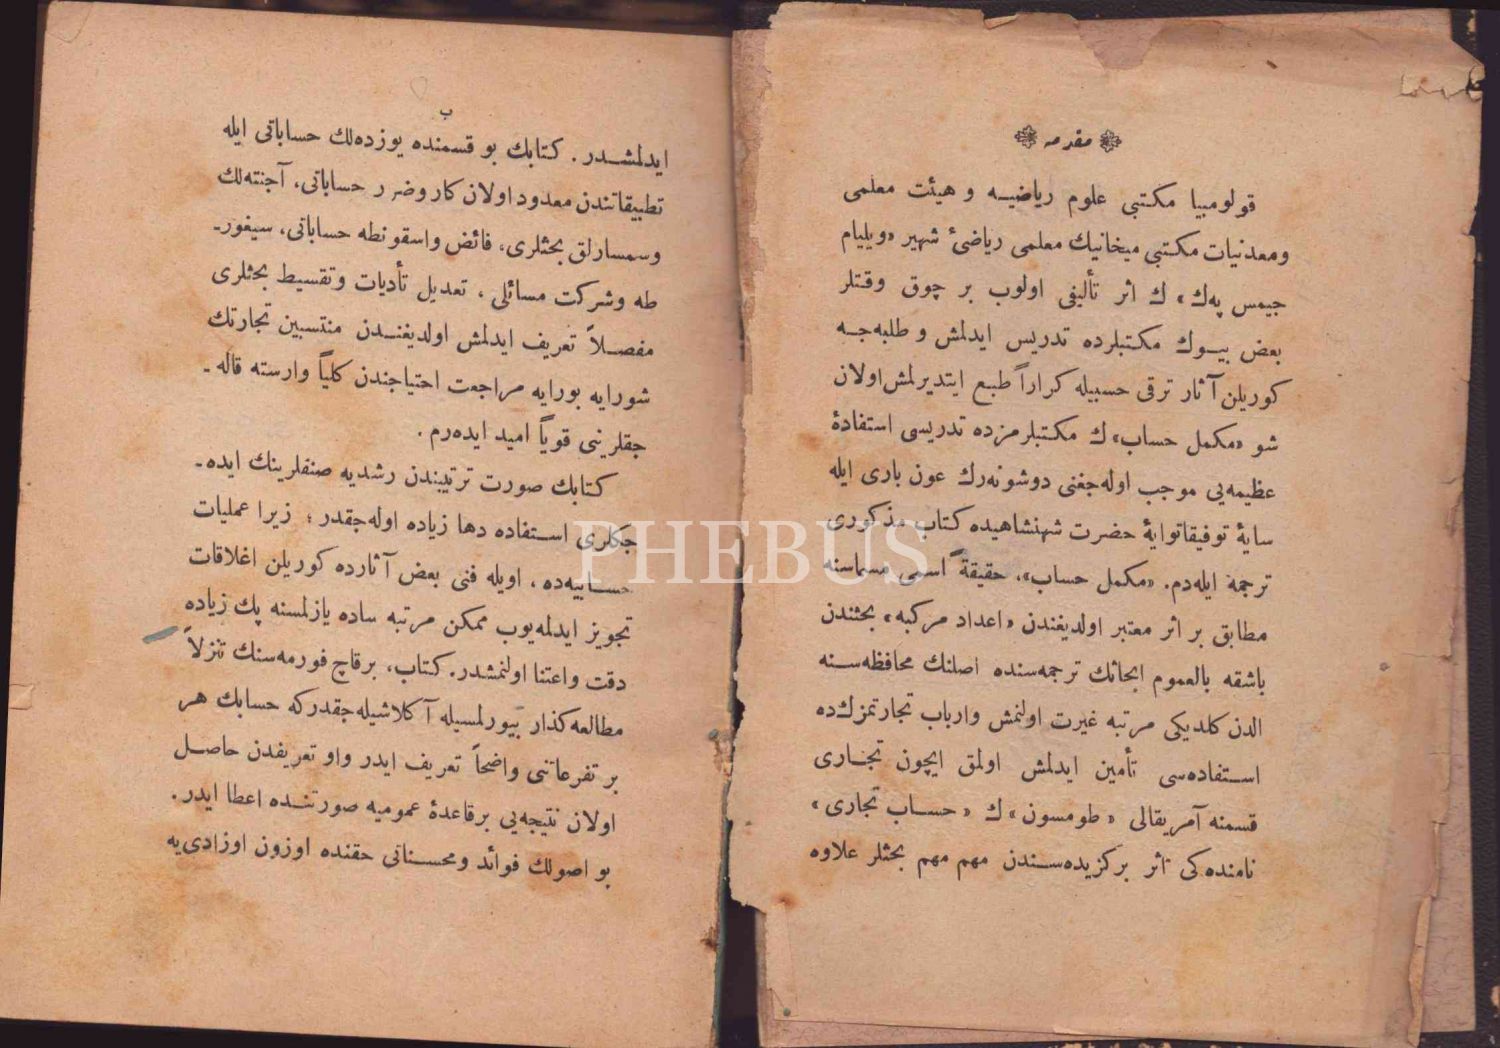 مقدمه
قولومبيا مكتبى علوم رياضيه و هيئت معلمى
ومعدنيات مكتبى ميخانيك معلمى رياضئ شهير «ويليام
جيمس پەك» ك اثر تأليفى اولوب بر چوق وقتلر
بعض بيوك مكتبلرده تدريس ايدلمش و طلبه‌جه
كوريلن آثار ترقى حسبيله كراراً طبع ايتديرلمش اولان
شو «مكمل حساب» ك مكتبلرمزده تدريسى استفادۀ
عظيمه‌يى موجب اوله‌جغنى دوشونه‌رك عون بارى ايله
سايۀ توفيقاتوايۀ حضرت شهنشاهيده كتاب مذكورى
ترجمه ايله‌دم. «مكمل حساب»، حقيقةً اسمى مسماسنه
مطابق بر اثر معتبر اولديغندن «اعداد مركبه» بحثندن
باشقه بالعموم ابحاثك ترجمه‌سنده اصلنك محافظه‌سنه
الدن كلديكى مرتبه غيرت اولنمش وارباب تجارتمزك‌ده
استفاده‌سى تأمين ايدلمش اولمق ايچون تجارى
قسمنه آمريقالى «طومسون» ك «حساب تجارى»
نامنده‌كى اثر بركزيده‌سندن مهم مهم بحثلر علاوه
ب
ايدلمشدر. كتابك بو قسمنده يوزده‌لك حساباتى ايله
تطبيقاتندن معدود اولان كار وضرر حساباتى، آجنته‌لك
وسمسارلق بحثلرى، فائض واسقونطه حساباتى، سيغور-
طه وشركت مسائلى، تعديل تأديات وتقسيط بحثلرى
مفصلاً تعريف ايدلمش اولديغندن منتسبين تجارتك
شورايه بورايه مراجعت احتياجندن كلياً وارسته قاله-
جقلرينى قوياً اميد ايده‌رم.
كتابك صورت ترتيبندن رشديه صنفلرينك ايده-
جكلرى استفاده دها زياده اوله‌جقدر؛ زيرا عمليات
حسابيه‌ده، اويله فنى بعض آثارده كوريلن اغلاقات
تجويز ايدلمه‌يوب ممكن مرتبه ساده يازلمسنه پك زياده
دقت واعتنا اولنمشدر. كتاب، برقاچ فورمه‌سنك تنزلاً
مطالعه‌كذار بيورلمسيله آكلاشيله‌جقدركه حسابك هر
بر تفرعاتنى واضحاً تعريف ايدر واو تعريفدن حاصل
اولان نتيجه‌يى برقاعدۀ عموميه صورتنده اعطا ايدر.
بو اصولك فوائد ومحسناتى حقنده اوزون اوزادى‌يه
PHEBUS